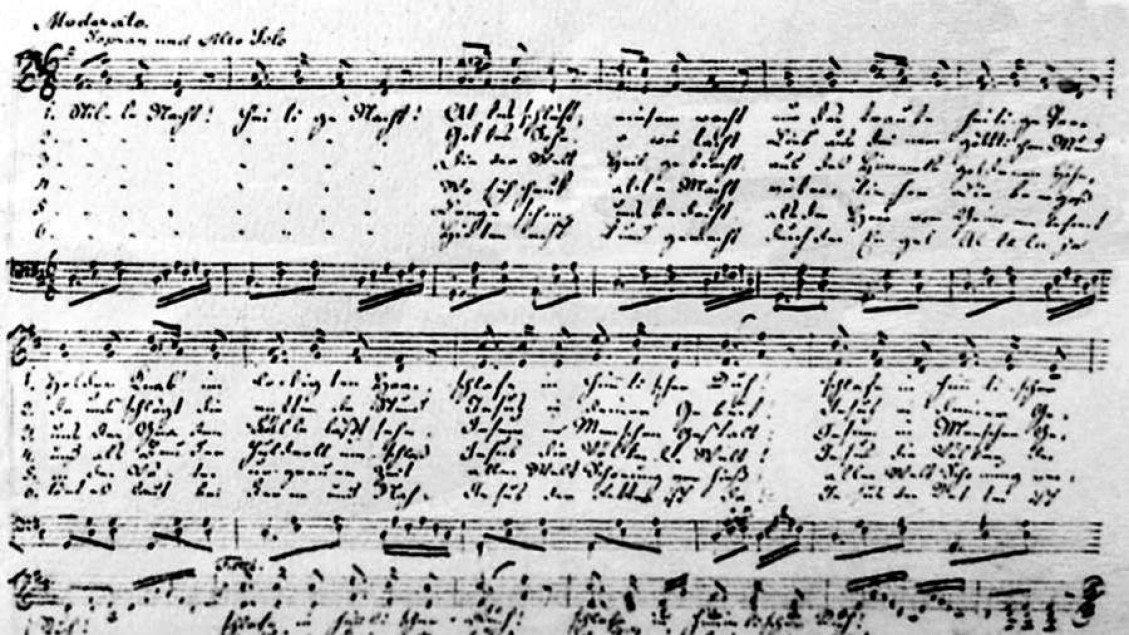 Moderato.
Sopran und Alto Solo
1. Stil- le Nacht! Hei li ge Nacht! Al les schläft, einsam wacht nur das traute heilige Paar
2. Gottes Sohn, o wie lacht Lieb aus deinem göttlichen Mund
3. Die der Welt Heil gebracht, aus des Himmels goldenen Höhn,
4. Wo sich heut alle Macht Liebe ergoß
5. Lange schon uns bedacht, als der Herr vom Grimme befreit
6. Hirten erst kund gemacht durch der Engel Al le lu ja
1. Holder Knab im lockigten Haar, schlafe in himmlischer Ruh! schlafe in himmlischer
2. Da uns schlägt die rettende Stund Jesus in deiner Geburt! Jesus in deiner Ge-
3. uns der Gnaden Fülle läßt sehn. Jesum in Menschen Gestalt, Jesum in Menschen Ge-
4. und als Bruder huldvoll umschloß Jesus die Völker der Welt! Jesus die Völker der
5. in der Väter urgrauer Zeit aller Welt Schonung verhieß aller Welt Schonung ver-
6. laut bei Ferne und Nah. Jesus der Retter ist da! Jesus der Retter ist
Ruh! schlafe in himmlischer Ruh! schlafe in himmlischer Ruh!